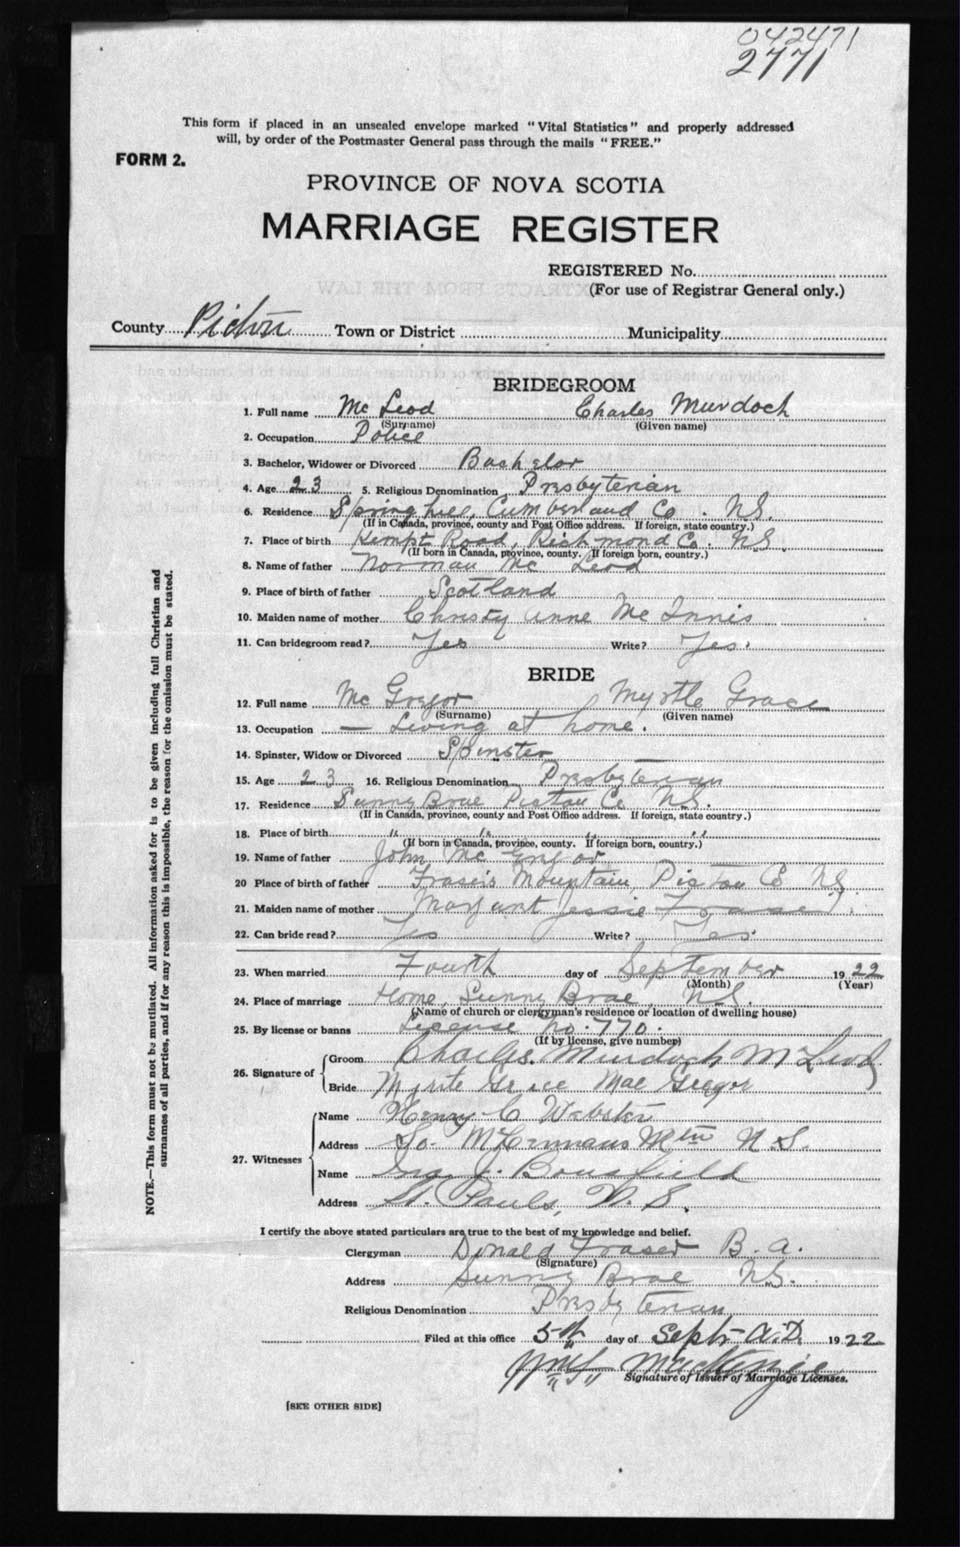 042471
2771
This form if placed in an unsealed envelope marked "Vital Statistics" and properly addressed
will, by order of the Postmaster General pass through the mails "FREE."
FORM 2.
PROVINCE OF NOVA SCOTIA
MARRIAGE REGISTER
REGISTERED No.
(For use of Registrar General only.)
County Pictou Town or District Municipality
BRIDEGROOM
1. Full name Mc Leod Charles Murdoch
(Surname) (Given name)
2. Occupation Police
3. Bachelor, Widower or Divorced Bachelor
4. Age 23 5. Religious Denomination Presbyterian
6. Residence Springhill, Cumberland Co. N.S.
(If in Canada, province, county and Post Office address. If foreign, state country.)
7. Place of birth Kempt Road, Richmond Co. N.S.
(If born in Canada, province, county. If foreign born, country.)
8. Name of father Norman Mc Leod
9. Place of birth of father Scotland
10. Maiden name of mother Christy Anne Mc Innis
11. Can bridegroom read? Yes Write? Yes.
BRIDE
12. Full name Mc Gregor Myrtle Grace
(Surname) (Given name)
13. Occupation — Living at home.
14. Spinster, Widow or Divorced Spinster
15. Age 23 16. Religious Denomination Presbyterian
17. Residence Sunny Brae Pictou Co N.S.
(If in Canada, province, county and Post Office address. If foreign, state country.)
18. Place of birth " " " "
(If born in Canada, province, county. If foreign born, country.)
19. Name of father John Mc Gregor
20 Place of birth of father Frasers Mountain, Pictou Co N.S.
21. Maiden name of mother Margaret Jessie Fraser
22. Can bride read? Yes Write? Yes.
23. When married Fourth day of September 1922
(Month) (Year)
24. Place of marriage Home, Sunny Brae, N.S.
(Name of church or clergyman's residence or location of dwelling house)
25. By license or banns License No. 770.
(If by license, give number)
26. Signature of Groom Charles Murdoch McLeod
Bride Myrtle Grace MacGregor
27. Witnesses Name Henry C Webster
Address Mtn N.S.
Name Geo J. Bousfield
Address St. Pauls, N.S.
I certify the above stated particulars are true to the best of my knowledge and belief.
Clergyman Donald Fraser B.A.
(Signature)
Address Sunny Brae N.S.
Religious Denomination Presbyterian
Filed at this office 5th day of Sept A.D. 1922
MacKenzie
Signature of Issuer of Marriage Licenses.
[SEE OTHER SIDE]
NOTE.—This form must not be mutilated. All information asked for is to be given including full Christian and
surnames of all parties, and if for any reason this is impossible, the reason for the omission must be stated.